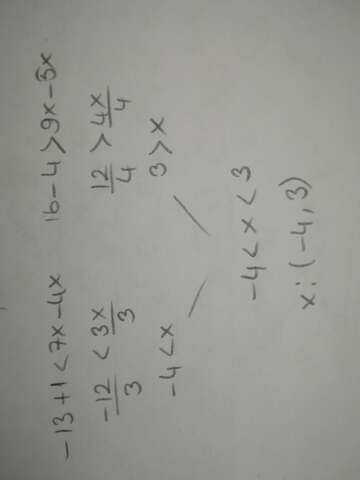 -13+1<7x-4x 16-4>9x-5x
-12/3 < 3x/3 12/4 > 4x/4
-4<x 3>x
-4<x<3
x:(-4,3)